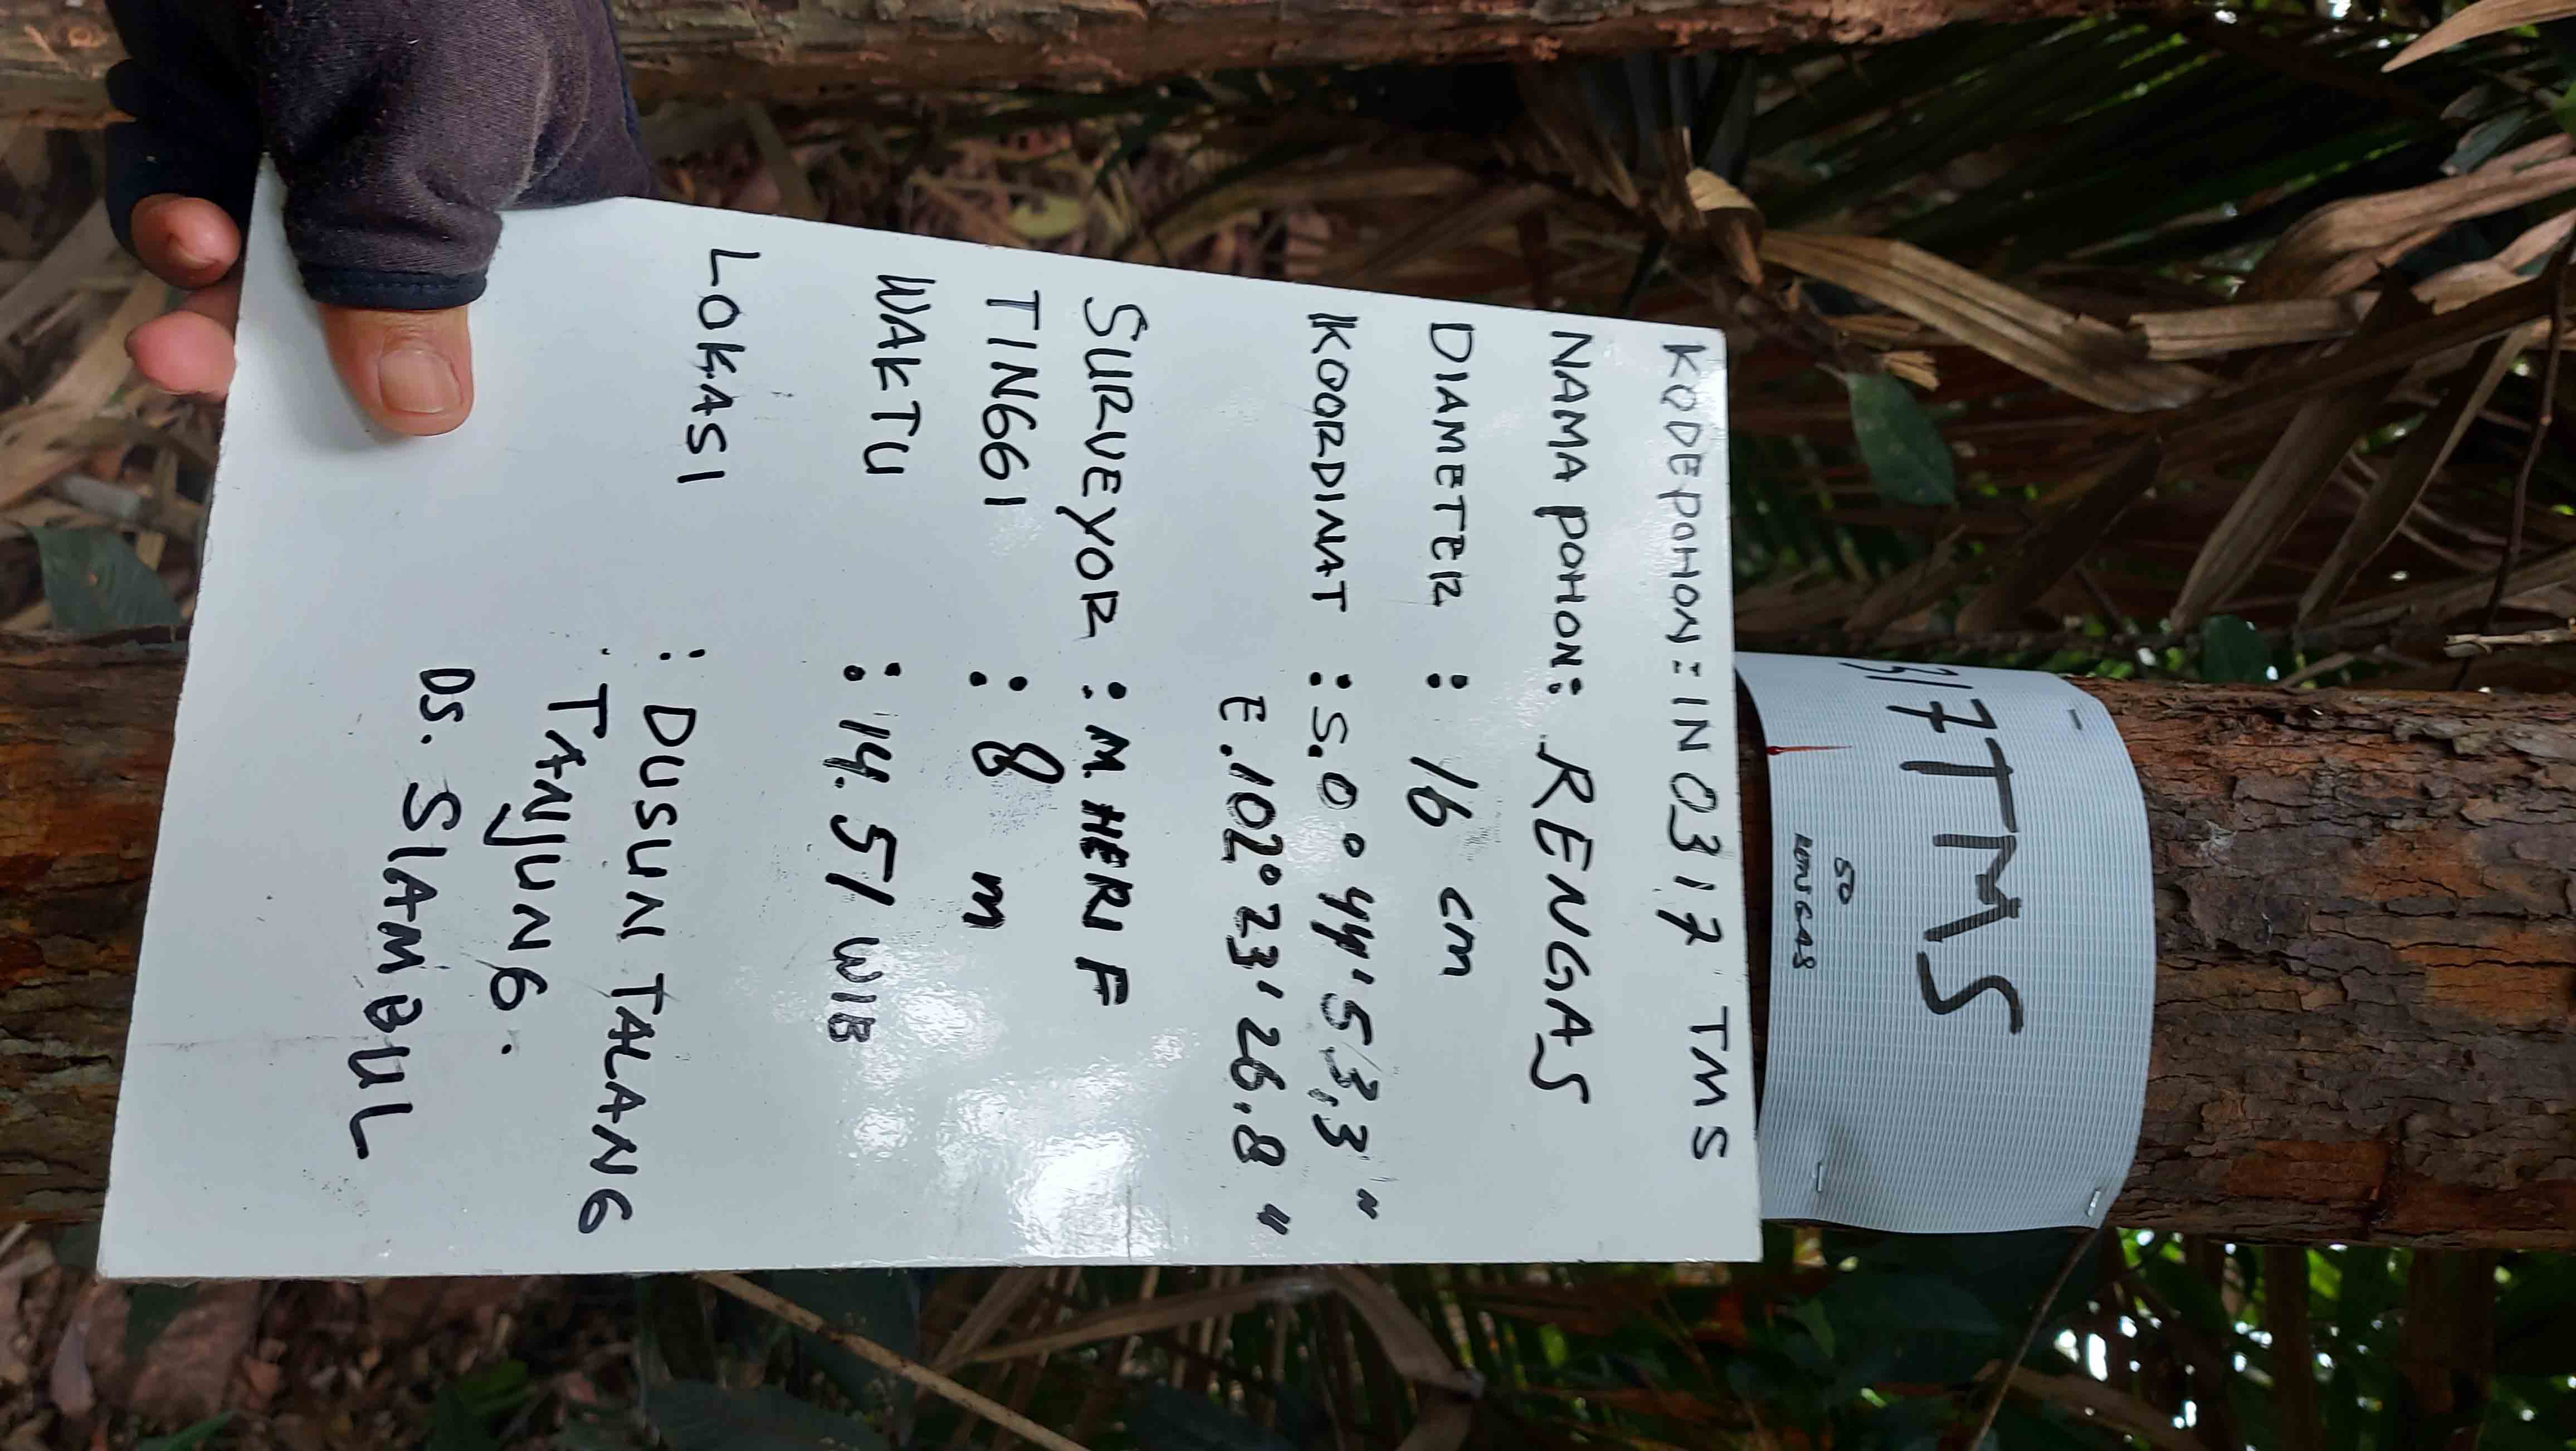 KODE POHON : IN 0317 TMS
NAMA POHON : RENGAS
DIAMETER : 16 cm
KOORDINAT : S.0°44'53,3"
E.102°23'26.8"
SURVEYOR : M. HERI F
TINGGI : 8 m
WAKTU : 14.51 WIB
LOKASI : DUSUN TALANG
TANJUNG.
DS. SIAMBUL
317 TMS
50